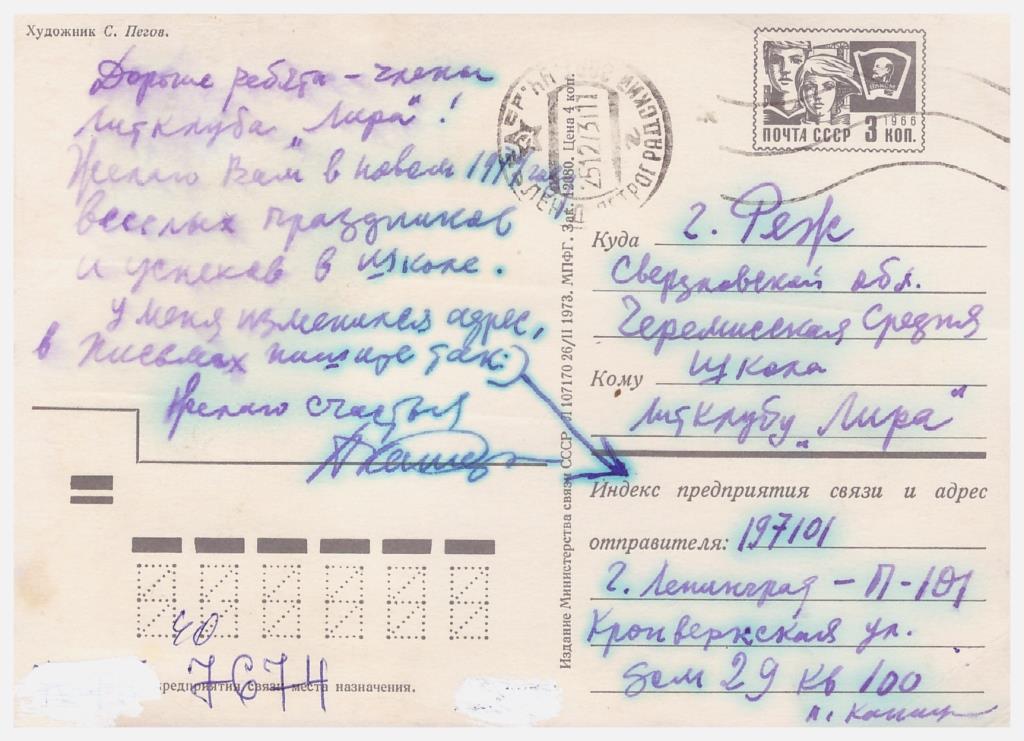 Художник С. Пегов.
Дорогие ребята – члены
литклуба „Лира"!
Желаю Вам в новом
веселых праздников
и успехов в школе.
У меня изменился адрес,
в письмах пишите так:
Желаю счастья
ПОЧТА СССР 3 КОП.
1966
ВЛКСМ
Куда г. Реж
Свердловской обл.
Черемисская средняя
Кому школа
литклубу „Лира"
Индекс предприятия связи и адрес
отправителя: 197101
г. Ленинград – П-101
Кронверкская ул.
дом 29 кв 100
Издание Министерства связи СССР. Л 107170 26/II 1973. МПФГ. Зак. 12080. Цена 4 коп.
40
7674
предприятия связи места назначения.